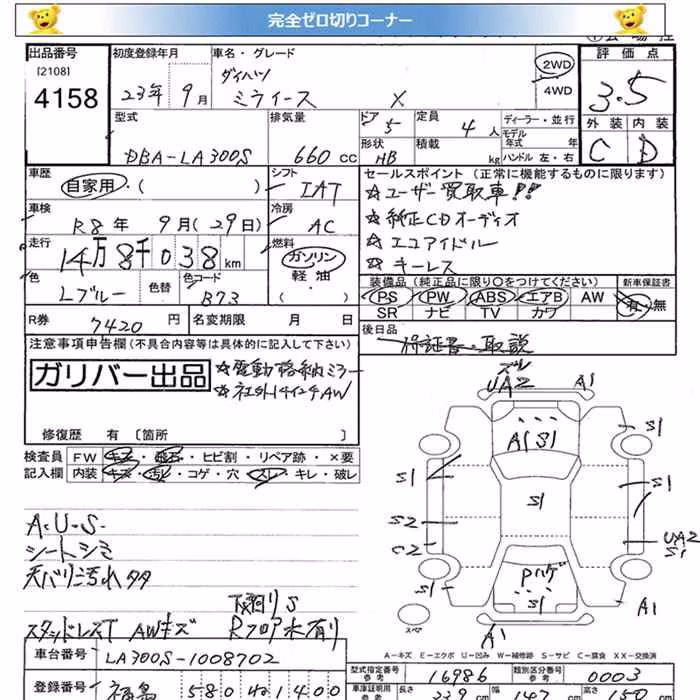 完全ゼロ切りコーナー
出品番号
[2108]
4158
初度登録年月
23年 9月
車名・グレード
ダイハツ
ミライース X
2WD
4WD
評価点
3.5
外装 内装
C D
型式
DBA-LA300S
排気量
660 cc
ドア
5
定員
4 人
形状
HB
積載
kg
ディーラー・並行
モデル
年式 年
ハンドル 左・右
車歴
自家用・( )
シフト
IAT
車検
R8年 9月(29日)
冷房
AC
走行
14万8千038km
燃料
ガソリン
軽油
色
Lブルー
色替
色コード
B73
R券
7420 円
名変期限 月 日
セールスポイント (正常に機能するものに限ります)
☆ユーザー買取車!!
☆純正CDオーディオ
☆エコアイドル
☆キーレス
装備品(純正品に限り○をつけてください)
PS PW ABS エアB AW
SR ナビ TV カワ
新車保証書
有・無
後日品
保証書・取説
注意事項申告欄(不具合内容等は具体的に記入して下さい)
ガリバー出品
☆電動格納ミラー
☆社外14インチAW
修復歴 有 〔箇所 〕
検査員
記入欄
FW キズ・飛石・ヒビ割・リペア跡・×要
内装 キズ・汚れ・コゲ・穴・スレ・キレ・破レ
ズレ
UA2 A1
A1 S1
S1
S1
S1
S1
S2
C2
UA2
S1
Pハゲ
S1
S1
A1
A1
スペア
A・U・S・
シートシミ
天バリ汚れタタ
下廻りS
スタッドレスT AWキズ Rフロア水有り
A−キズ E−エクボ U−凹み W−補修跡 S−サビ C−腐食 XX−交換済
車台番号
LA300S-1008702
型式指定番号
参考
16986
類別区分番号
参考
0003
登録番号
福島 580 1400
車庫証明用
参考
長さ
339 cm
幅
147 cm
高さ
150 cm